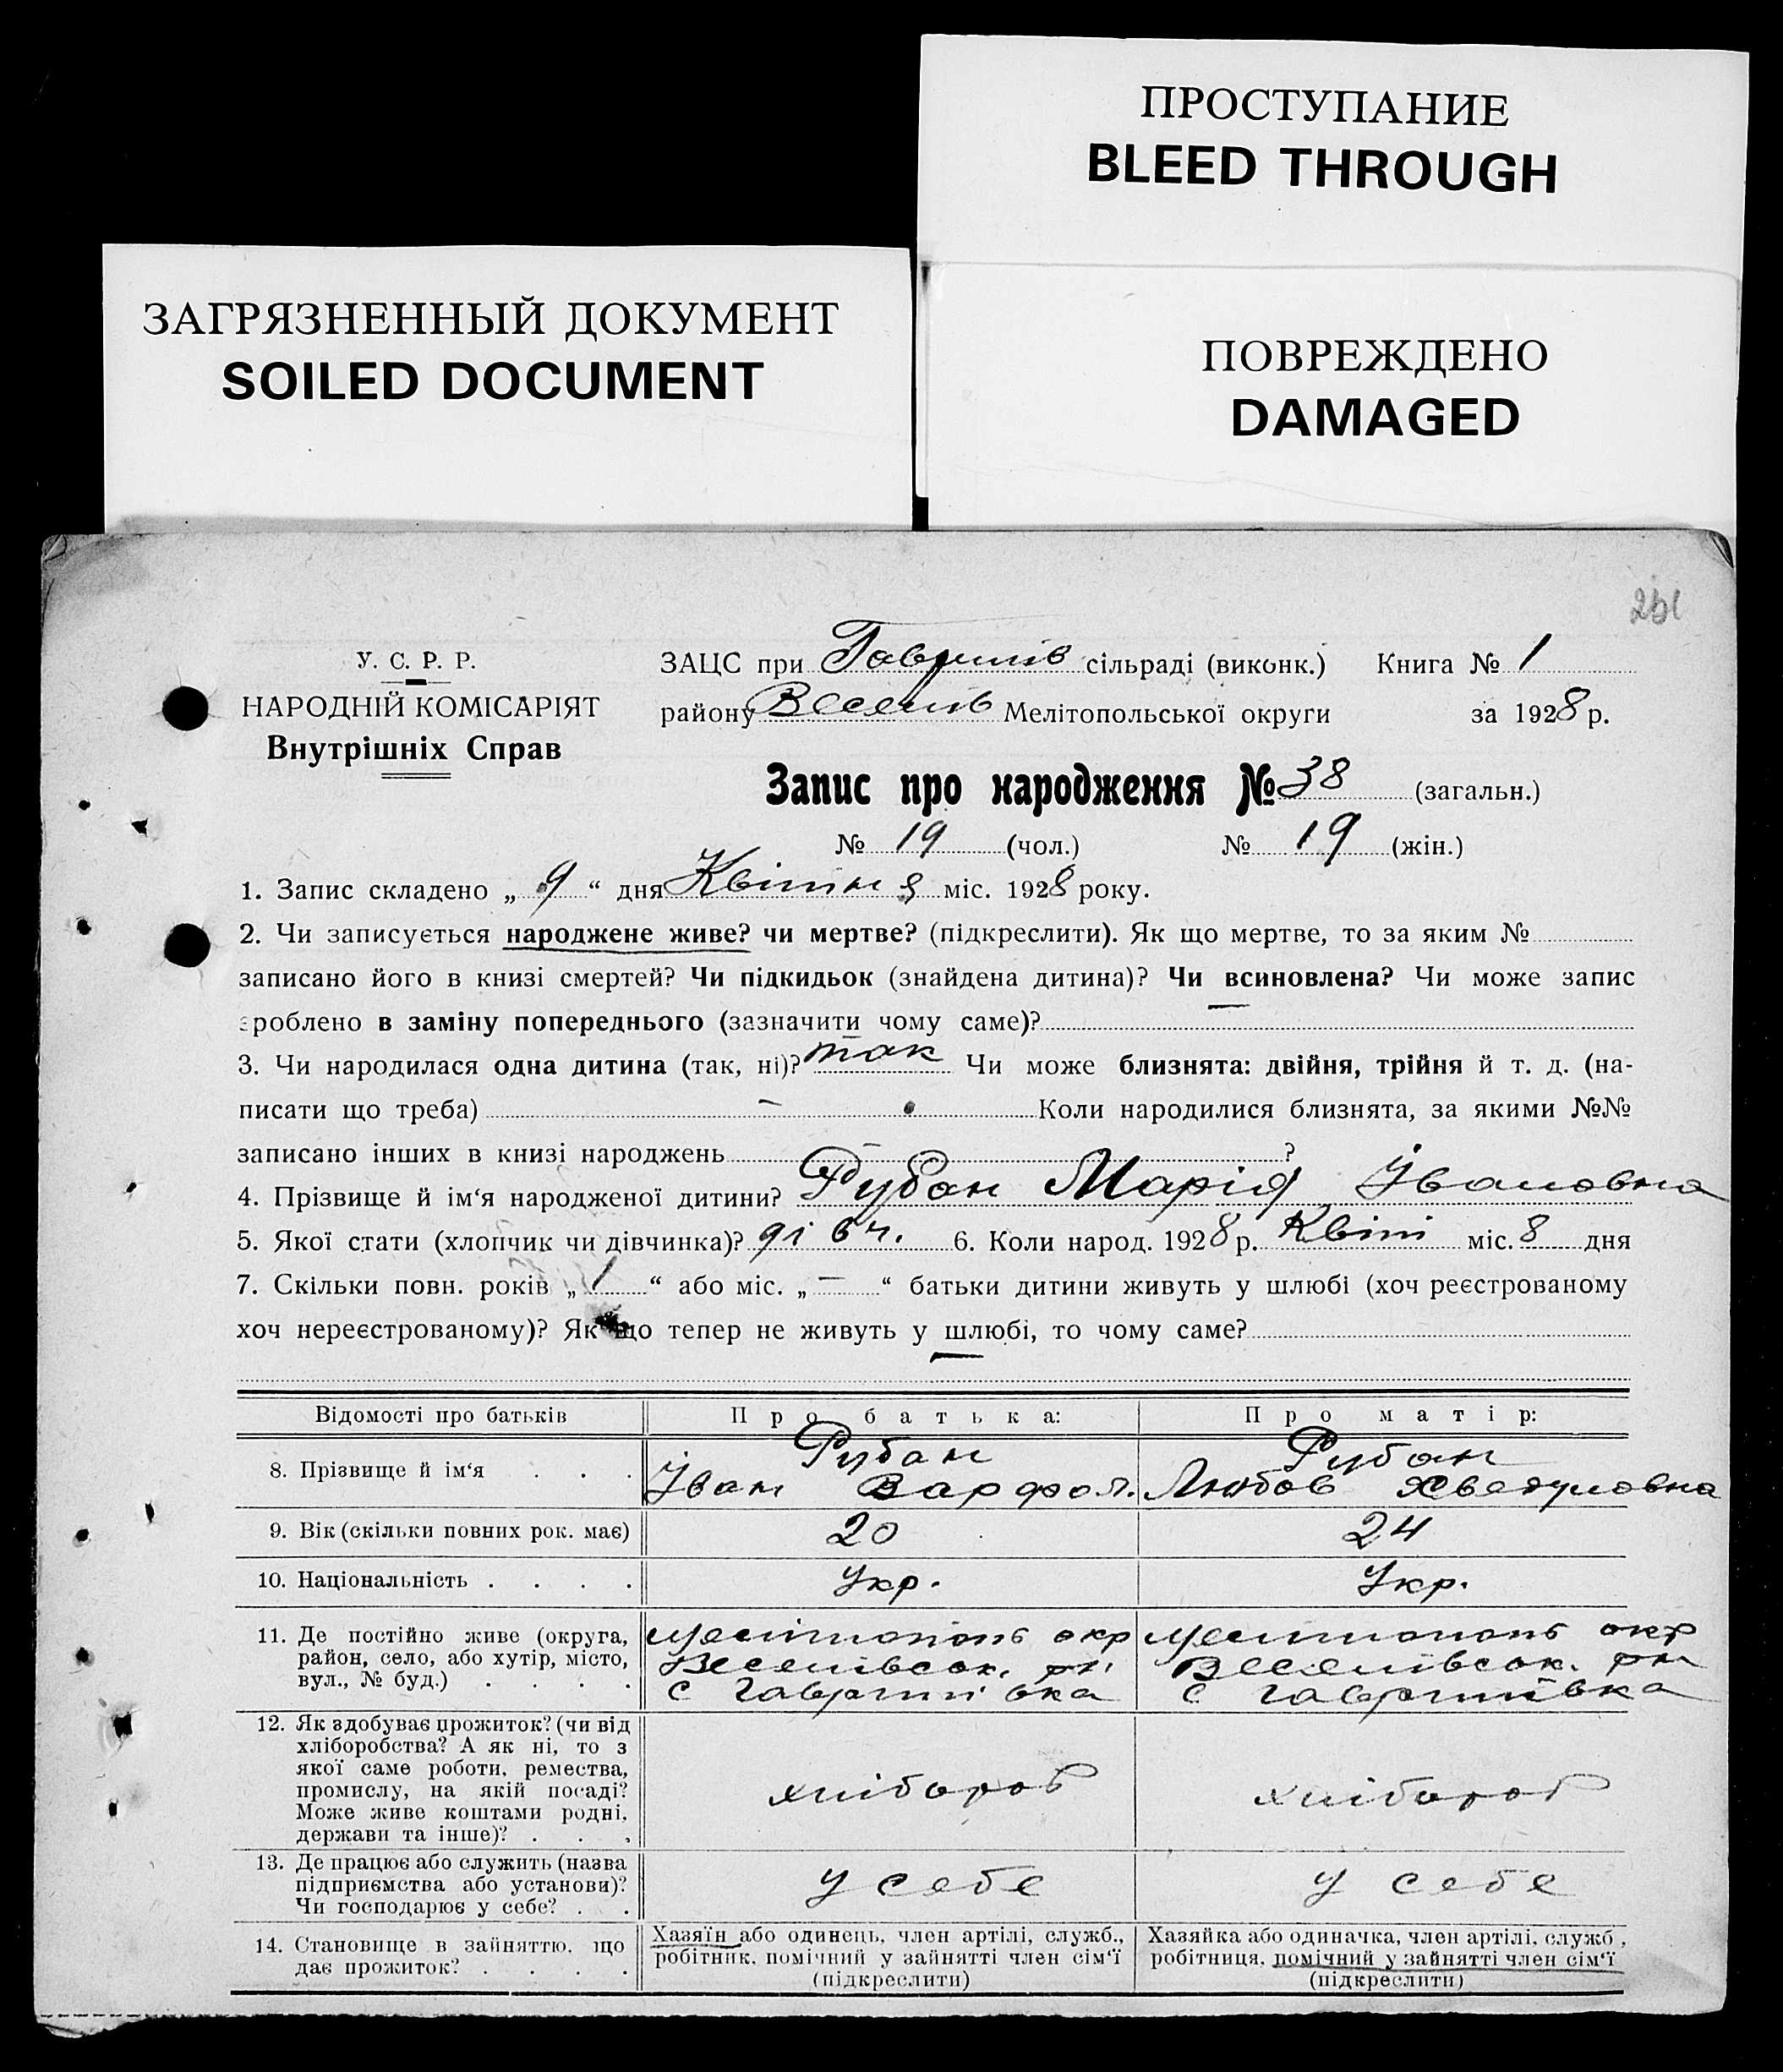 ПРОСТУПАНИЕ
BLEED THROUGH
ЗАГРЯЗНЕННЫЙ ДОКУМЕНТ
SOILED DOCUMENT
ПОВРЕЖДЕНО
DAMAGED
251
У. С. Р. Р.
НАРОДНІЙ КОМІСАРІЯТ
Внутрішніх Справ
ЗАЦС при Гаврилів сільраді (виконк.) Книга № 1
району Веселів Мелітопольської округи за 1928 р.
Запис про народження № 38 (загальн.)
№ 19 (чол.) № 19 (жін.)
1. Запис складено „ 9 “ дня Квітня міс. 1928 року.
2. Чи записується народжене живе? чи мертве? (підкреслити). Як що мертве, то за яким №
записано його в книзі смертей? Чи підкидьок (знайдена дитина)? Чи всиновлена? Чи може запис
зроблено в заміну попереднього (зазначити чому саме)?
3. Чи народилася одна дитина (так, ні)? так Чи може близнята: двійня, трійня й т. д. (на-
писати що треба) — Коли народилися близнята, за якими №№
записано інших в книзі народжень — ?
4. Прізвище й ім‘я народженої дитини? Рубан Марія Івановна
5. Якої стати (хлопчик чи дівчинка)? дівч. 6. Коли народ. 1928 р. Квіт міс. 8 дня
7. Скільки повн. років „ 1 “ або міс. „ — “ батьки дитини живуть у шлюбі (хоч реєстрованому
хоч нереєстрованому)? Як що тепер не живуть у шлюбі, то чому саме?
Відомості про батьків
Про батька:
Про матір:
8. Прізвище й ім‘я . . .
Рубан
Іван Варфол.
Рубан
Любов Хведуловна
9. Вік (скільки повних рок. має)
20
24
10. Національність . . . .
Укр.
Укр.
11. Де постійно живе (округа,
район, село, або хутір, місто,
вул., № буд.) . . . .
Мелітополь окр
Веселівськ. рн.
с Гаврилівка
Мелітополь окр
Веселівськ. рн
с Гаврилівка
12. Як здобуває прожиток? (чи від
хліборобства? А як ні, то з
якої саме роботи, ремества,
промислу, на якій посаді?
Може живе коштами родні,
держави та інше)? . . .
хлібороб
хлібороб
13. Де працює або служить (назва
підприємства або установи)?
Чи господарює у себе? . .
у себе
у себе
14. Становище в зайняттю, що
дає прожиток? . . . .
Хазяїн або одинець, член артілі, служб.,
робітник, помічний у зайнятті член сім‘ї
(підкреслити)
Хазяйка або одиначка, член артілі, служб.,
робітниця, помічний у зайнятті член сім‘ї
(підкреслити)